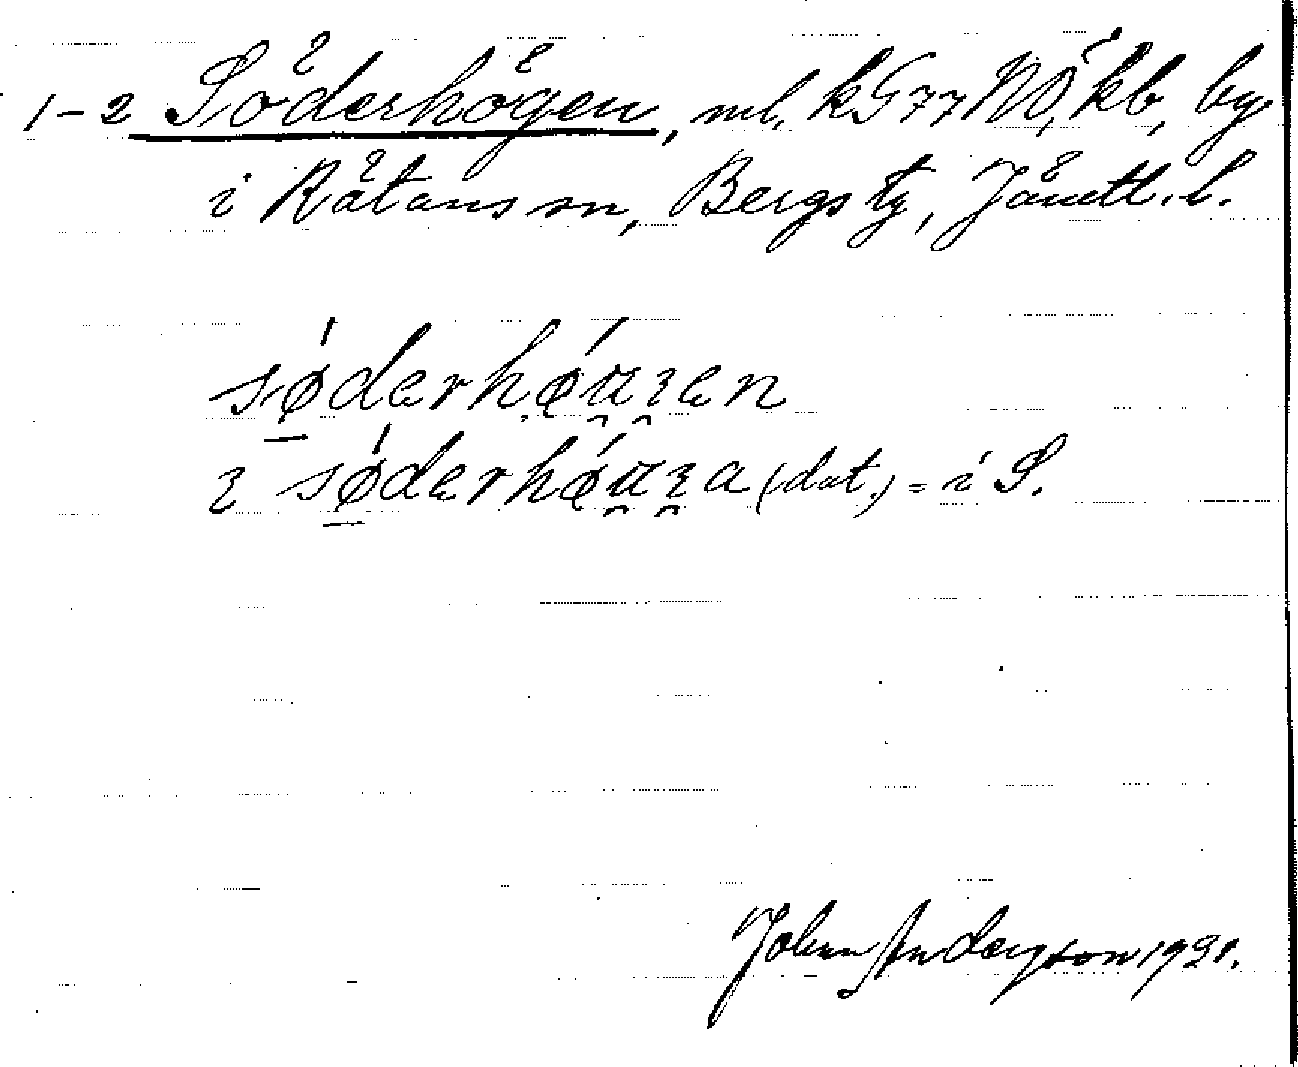 1-2 Söderhögen, ml. kG77NO, kb, by
i Rätans sn, Bergs tg, Jämtl. l.
sǿdərhǿʉɪən
ɪ sǿdərhǿʉɪa (dat.) = i S.
Johan Anderson 1931.